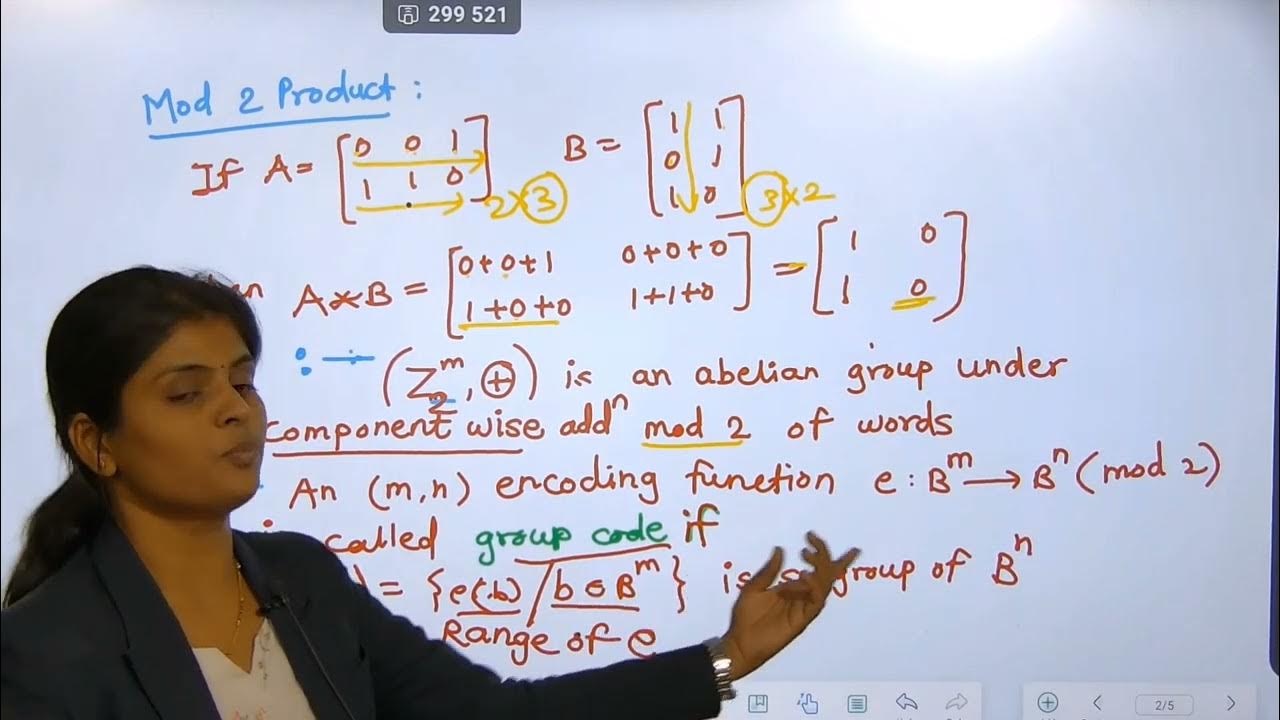 299 521
Mod 2 Product :
If A = [0 0 1 B = [1 1
1 1 0] 2×3 0 1
1 0] 3×2
A * B = [0+0+1 0+0+0 = [1 0
1+0+0 1+1+0] 1 0]
(Z₂ᵐ, ⊕) is an abelian group under
component wise addⁿ mod 2 of words
An (m,n) encoding function e : Bᵐ → Bⁿ (mod 2)
called group code if
) = {e(b) / b ∈ Bᵐ} is group of Bⁿ
Range of e
2/5